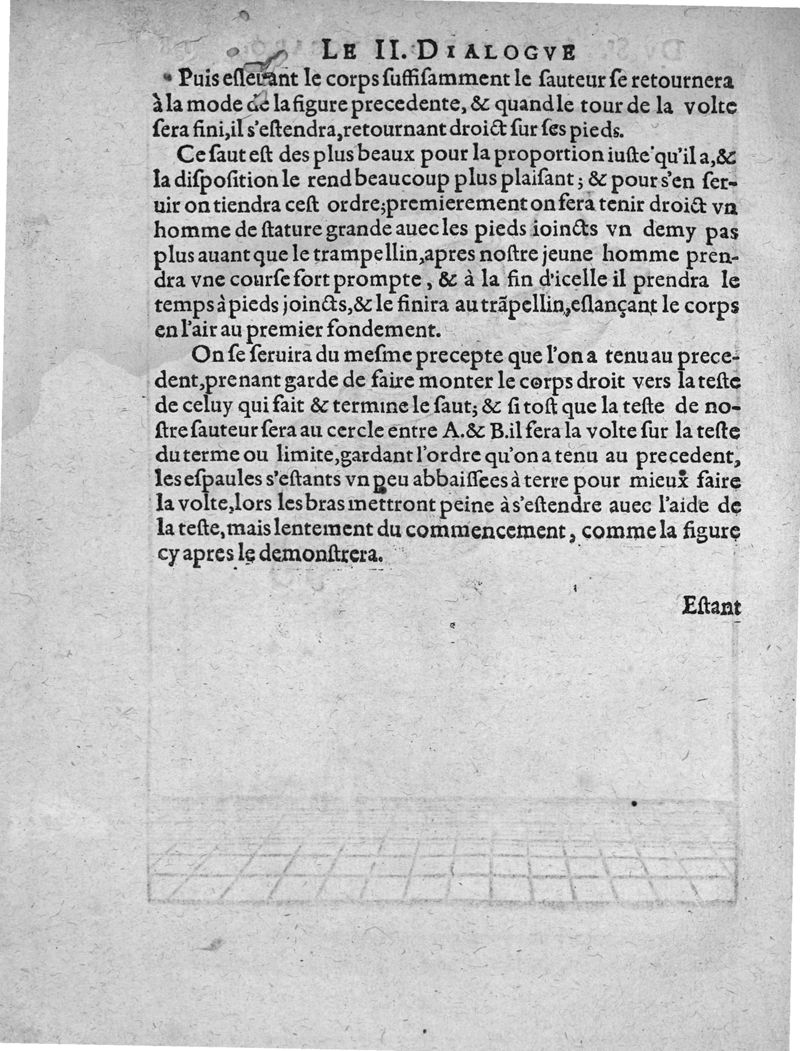 LE II. DIALOGVE
Puis esleuant le corps suffisamment le sauteur se retournera
à la mode de la figure precedente, & quand le tour de la volte
sera fini, il s'estendra, retournant droict sur ses pieds.
Ce saut est des plus beaux pour la proportion iuste qu'il a, &
la disposition le rend beaucoup plus plaisant; & pour s'en ser-
uir on tiendra cest ordre; premierement on fera tenir droict vn
homme de stature grande auec les pieds ioincts vn demy pas
plus auant que le trampellin, apres nostre jeune homme pren-
dra vne course fort prompte, & à la fin d'icelle il prendra le
temps à pieds joincts, & le finira au trãpellin, eslançant le corps
en l'air au premier fondement.
On se seruira du mesme precepte que l'on a tenu au prece-
dent, prenant garde de faire monter le corps droit vers la teste
de celuy qui fait & termine le saut; & si tost que la teste de no-
stre sauteur sera au cercle entre A. & B. il fera la volte sur la teste
du terme ou limite, gardant l'ordre qu'on a tenu au precedent,
les espaules s'estants vn peu abbaissees à terre pour mieux faire
la volte, lors les bras mettront peine à s'estendre auec l'aide de
la teste, mais lentement du commencement, comme la figure
cy apres le demonstrera.
Estant